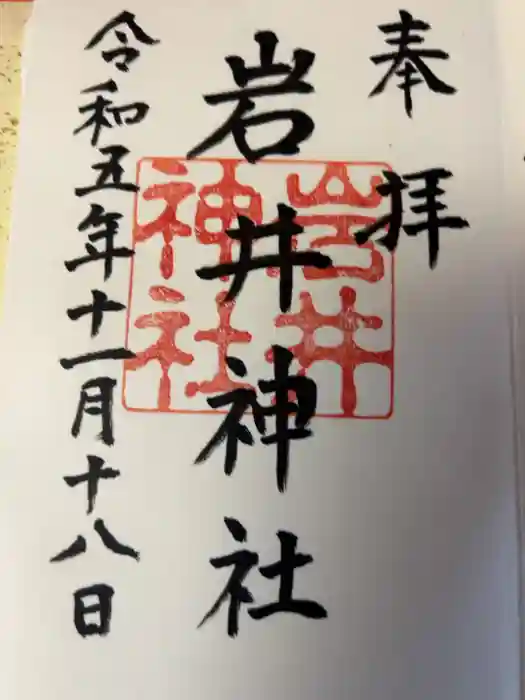 奉拝
岩井神社
岩井
神社
令和五年十一月十八日